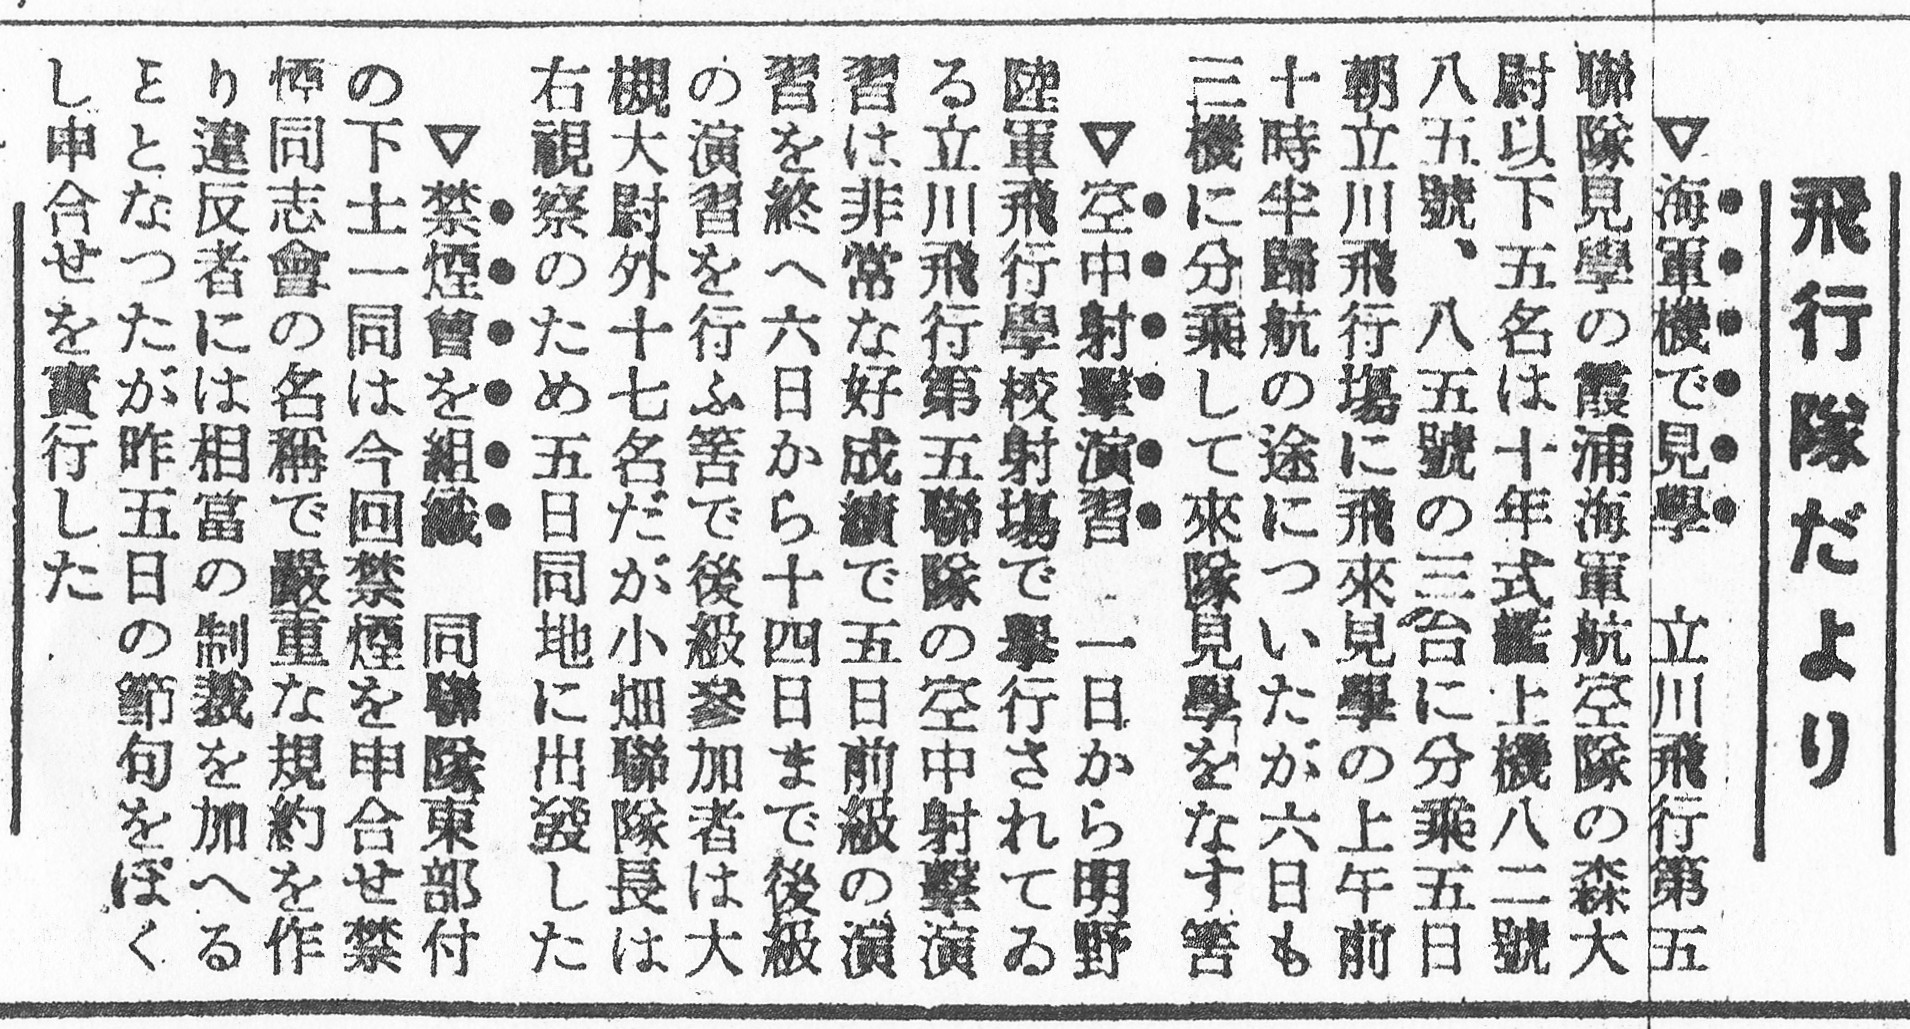 飛行隊だより
▽海軍機で見學　立川飛行第五
聯隊見學の霞浦海軍航空隊の森大
尉以下五名は十年式艦上機八二號
八五號、八五號の三台に分乘五日
朝立川飛行場に飛來見學の上午前
十時半歸航の途についたが六日も
三機に分乘して來隊見學をなす筈
▽空中射撃演習　一日から明野
陸軍飛行學校射場で擧行されてゐ
る立川飛行第五聯隊の空中射撃演
習は非常な好成績で五日前級の演
習を終へ六日から十四日まで後級
の演習を行ふ筈で後級參加者は大
槻大尉外十七名だが小畑聯隊長は
右視察のため五日同地に出發した
▽禁煙會を組織　同聯隊東部付
の下士一同は今回禁煙を申合せ禁
煙同志會の名稱で嚴重な規約を作
り違反者には相當の制裁を加へる
ことなつたが昨五日の節句をぼく
し申合せを實行した